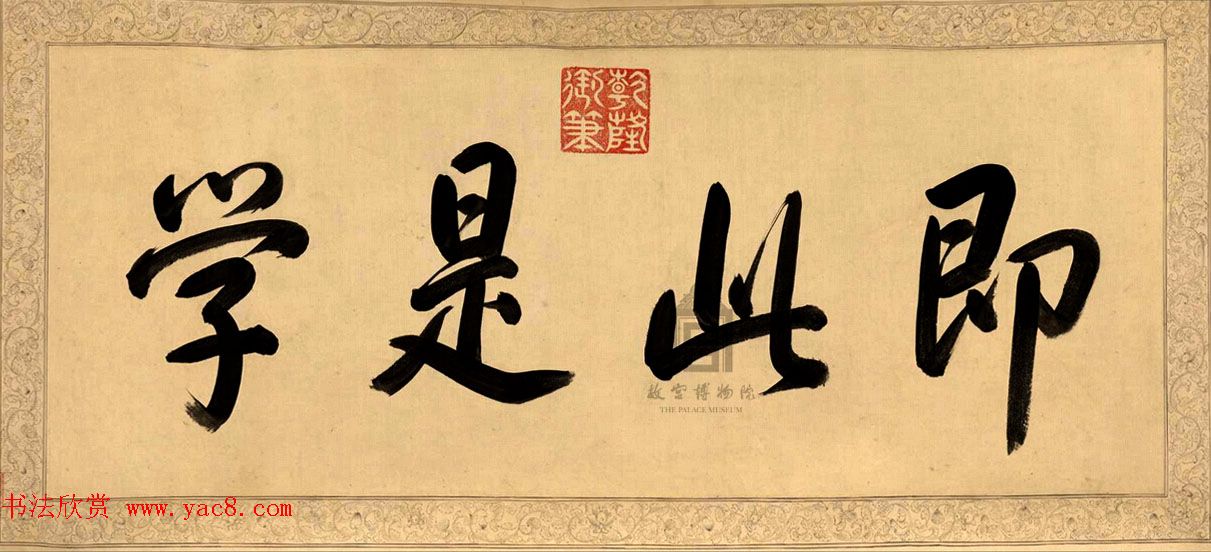 即此是学
乾隆御笔
故宫博物院
THE PALACE MUSEUM
书法欣赏 www.yac8.com